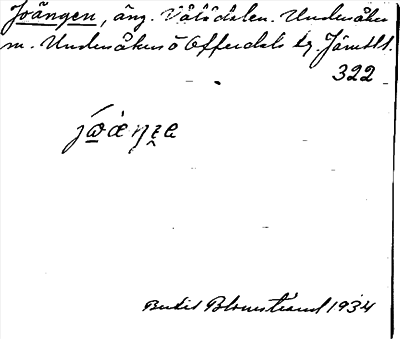 Joängen, äng. Vålådalen. Undersåkers
m. Undersåkers o Offerdals tg. Jämtl l.
322
Bertil Blomstrand 1934